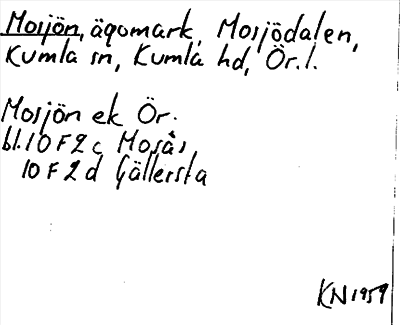 Mosjön, ägomark, Mosjödalen,
Kumla sn, Kumla hd, Ör.l.
Mosjön ek Ör.
bl.10F2c Mosås
10F2d Gällersta
KN1959